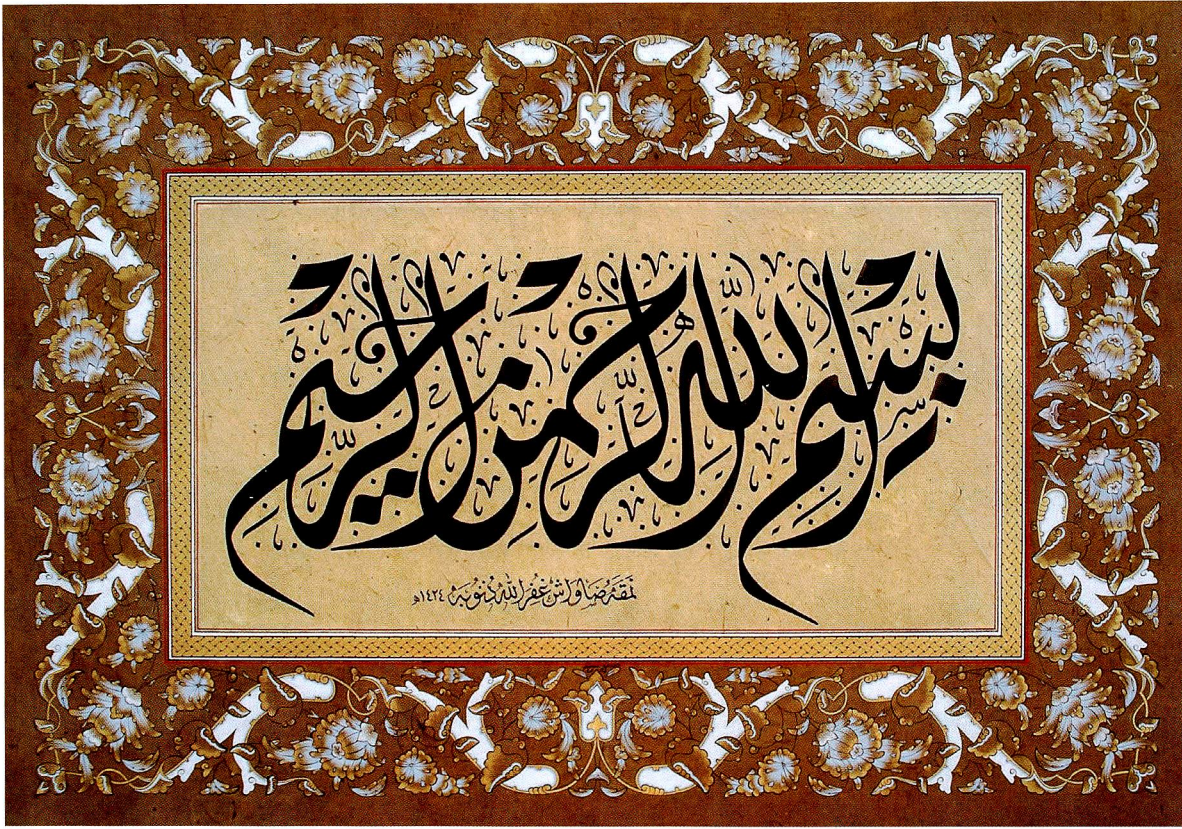 بسم الله الرحمن الرحيم
نمقه صاواش غفر الله ذنوبه ١٤٢٤ه